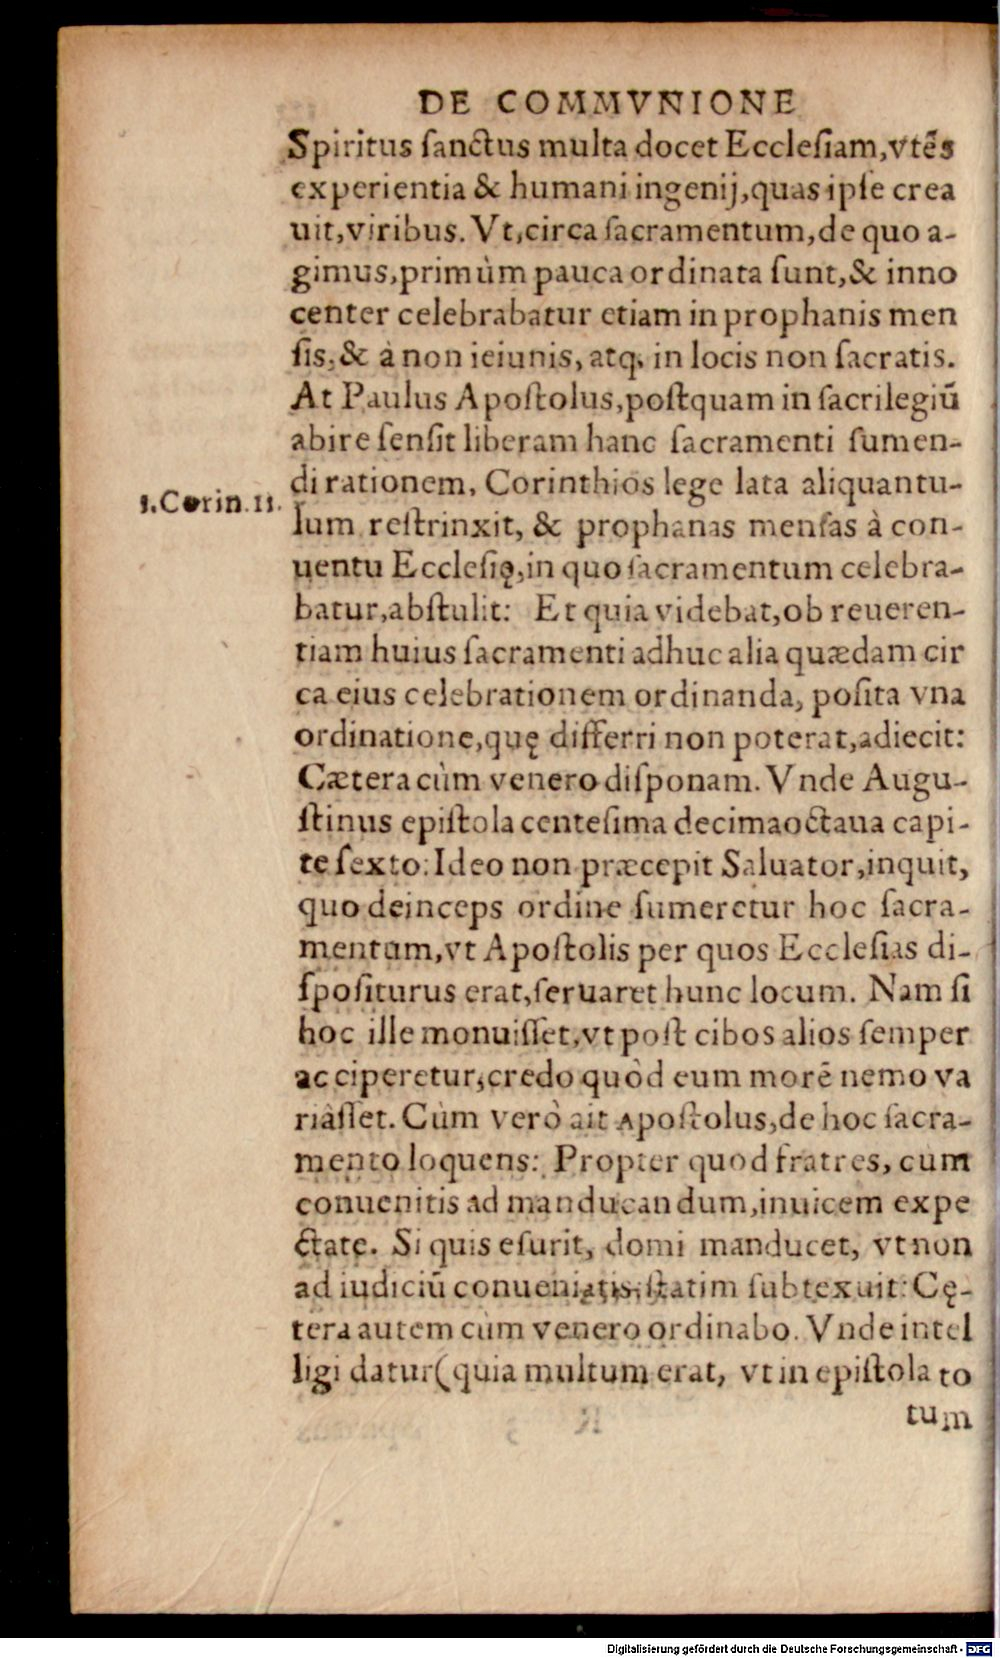 DE COMMVNIONE
Spiritus ſanctus multa docet Eccleſiam, vtẽs
experientia & humani ingenij, quas ipſe crea
uit, viribus. Vt, circa ſacramentum, de quo a-
gimus, primùm pauca ordinata ſunt, & inno
center celebrabatur etiam in prophanis men
ſis, & à non ieiunis, atq, in locis non ſacratis.
At Paulus Apoſtolus, poſtquam in ſacrilegiũ
abire ſenſit liberam hanc ſacramenti ſumen-
di rationem, Corinthios lege lata aliquantu-
1. Corin. 11.
lum reſtrinxit, & prophanas menſas à con-
uentu Eccleſię, in quo ſacramentum celebra-
batur, abſtulit: Et quia videbat, ob reueren-
tiam huius ſacramenti adhuc alia quædam cir
ca eius celebrationem ordinanda, poſita vna
ordinatione, quę differri non poterat, adiecit:
Cætera cùm venero diſponam. Vnde Augu-
ſtinus epiſtola centeſima decimaoctaua capi-
te ſexto: Ideo non præcepit Saluator, inquit,
quo deinceps ordine ſumeretur hoc ſacra-
mentum, vt Apoſtolis per quos Eccleſias di-
ſpoſiturus erat, ſeruaret hunc locum. Nam ſi
hoc ille monuiſſet, vt poſt cibos alios ſemper
acciperetur, credo quòd eum morẽ nemo va
riàſſet. Cùm verò ait Apoſtolus, de hoc ſacra-
mento loquens: Propter quod fratres, cum
conuenitis ad manducandum, inuicem expe
ctate. Si quis eſurit, domi manducet, vt non
ad iudiciũ conueniatis, ſtatim ſubtexuit: Cę-
tera autem cùm venero ordinabo. Vnde intel
ligi datur (quia multum erat, vt in epiſtola to
tum
Digitalisierung gefördert durch die Deutsche Forschungsgemeinschaft - DFG